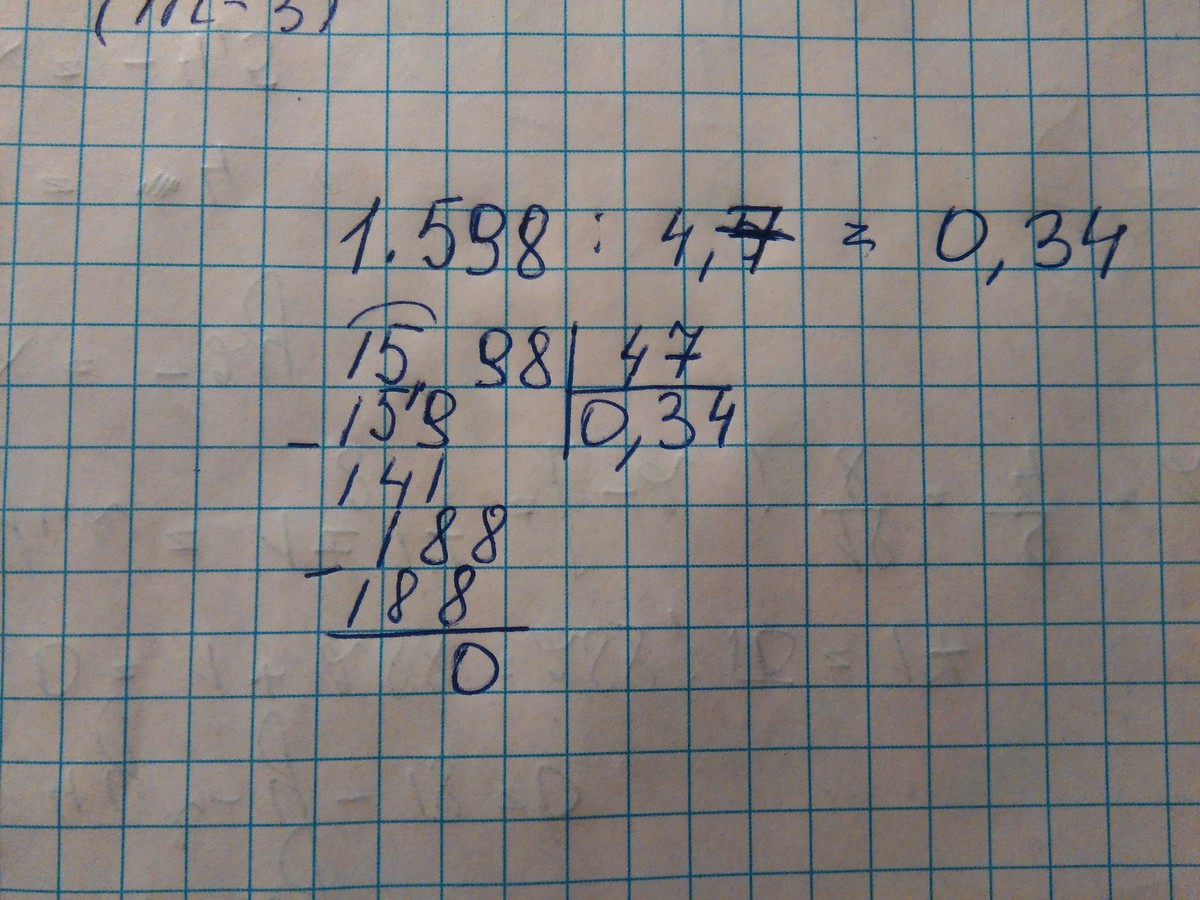 (m-3)
1.598 : 4,7 = 0,34
15,98 | 47
- 159 | 0,34
141
188
- 188
0